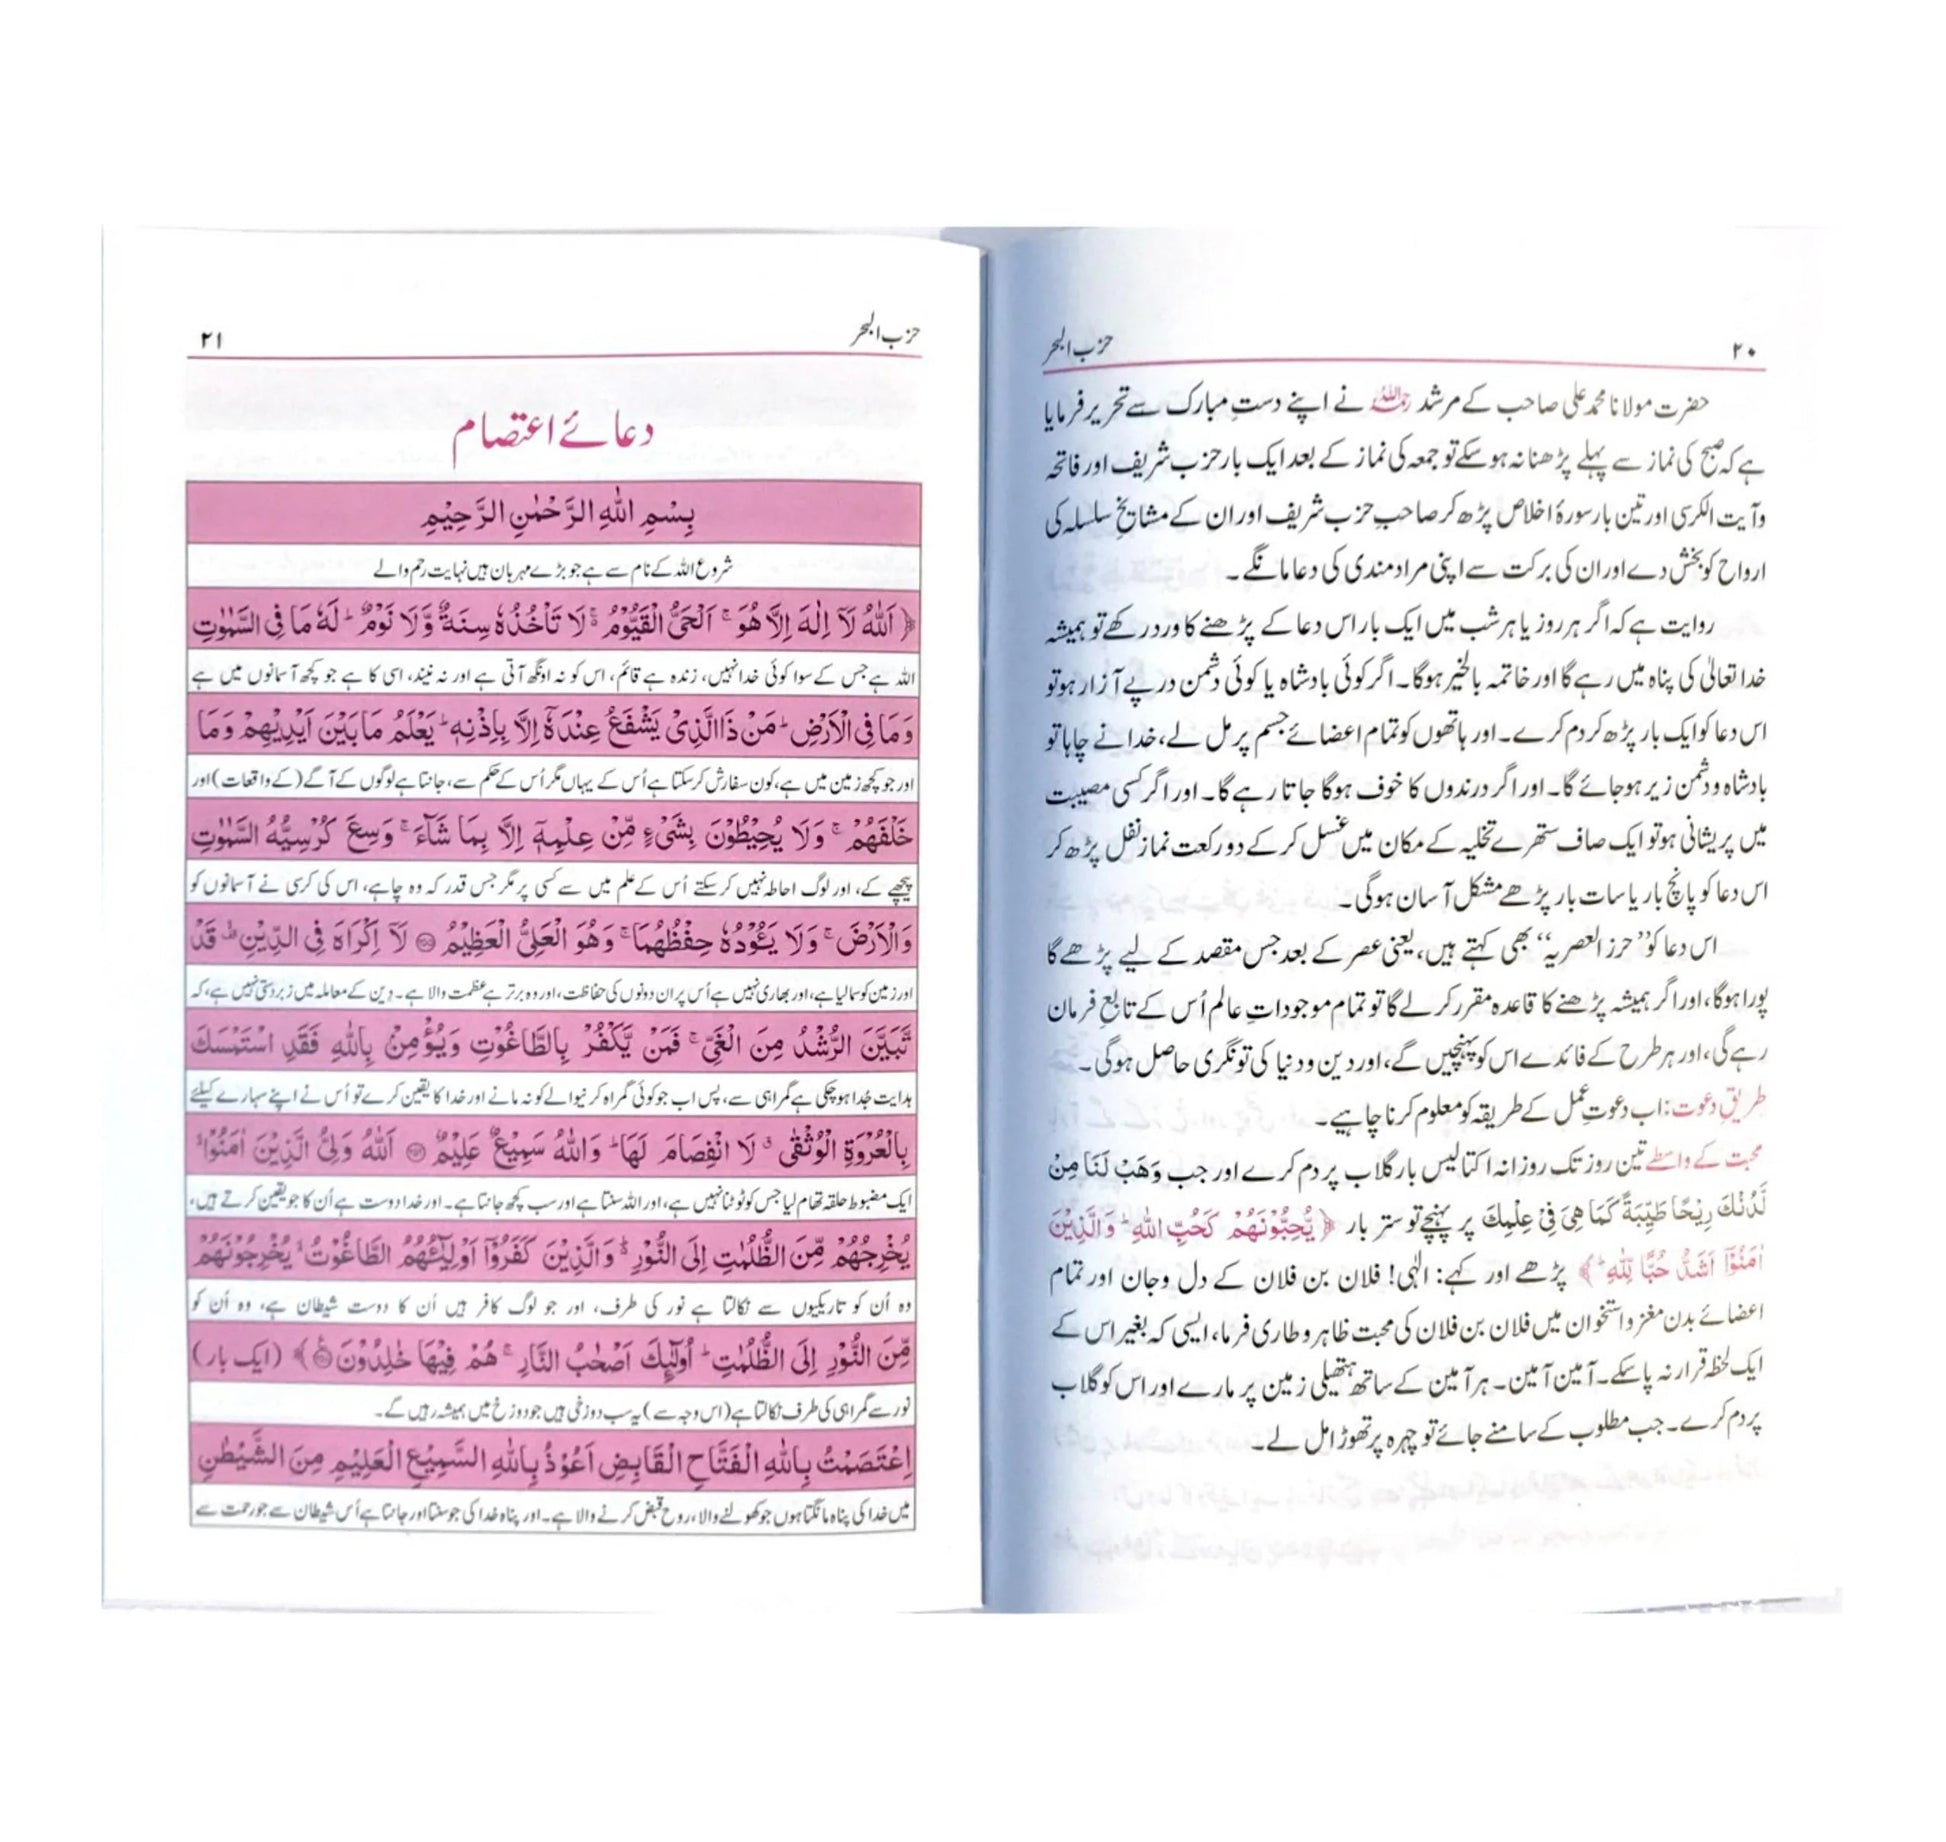 ۲۰ حزب البحر
حضرت مولانا محمد علی صاحب کے مرشد رحمہ اللہ نے اپنے دستِ مبارک سے تحریر فرمایا
ہے کہ صبح کی نماز سے پہلے پڑھنا نہ ہو سکے تو جمعہ کی نماز کے بعد ایک بار حزب شریف اور فاتحہ
و آیت الکرسی اور تین بار سورۂ اخلاص پڑھ کر صاحبِ حزب شریف اور ان کے مشایخِ سلسلہ کی
ارواح کو بخش دے اور ان کی برکت سے اپنی مراد مندی کی دعا مانگے۔
روایت ہے کہ اگر ہر روز یا ہر شب میں ایک بار اس دعا کے پڑھنے کا ورد رکھے تو ہمیشہ
خدا تعالیٰ کی پناہ میں رہے گا اور خاتمہ بالخیر ہوگا۔ اگر کوئی بادشاہ یا کوئی دشمن درپے آزار ہو تو
اس دعا کو ایک بار پڑھ کر دم کرے۔ اور ہاتھوں کو تمام اعضائے جسم پر مل لے، خدا نے چاہا تو
بادشاہ و دشمن زیر ہو جائے گا۔ اور اگر درندوں کا خوف ہوگا جاتا رہے گا۔ اور اگر کسی مصیبت
میں پریشانی ہو تو ایک صاف ستھرے تخلیہ کے مکان میں غسل کر کے دو رکعت نماز نفل پڑھ کر
اس دعا کو پانچ بار یا سات بار پڑھے مشکل آسان ہوگی۔
اس دعا کو ”حرز العصریہ“ بھی کہتے ہیں، یعنی عصر کے بعد جس مقصد کے لیے پڑھے گا
پورا ہوگا، اور اگر ہمیشہ پڑھنے کا قاعدہ مقرر کر لے گا تو تمام موجوداتِ عالم اُس کے تابع فرمان
رہے گی، اور ہر طرح کے فائدے اس کو پہنچیں گے، اور دین و دنیا کی تونگری حاصل ہوگی۔
طریقِ دعوت: اب دعوتِ عمل کے طریقہ کو معلوم کرنا چاہیے۔
محبت کے واسطے تین روز تک روزانہ اکتالیس بار گلاب پر دم کرے اور جب وَهَبْ لَنَا مِنْ
لَّدُنْكَ رِيْحًا طَيِّبَةً كَمَا هِيَ فِيْ عِلْمِكَ پر پہنچے تو ستر بار ﴿يُّحِبُّوْنَهُمْ كَحُبِّ اللّٰهِ ؕ وَالَّذِيْنَ
اٰمَنُوْٓا اَشَدُّ حُبًّا لِّلّٰهِ ؕ﴾ پڑھے اور کہے: الٰہی! فلان بن فلان کے دل و جان اور تمام
اعضائے بدن مغز و استخوان میں فلان بن فلان کی محبت ظاہر و طاری فرما، ایسی کہ بغیر اس کے
ایک لحظہ قرار نہ پا سکے۔ آمین آمین۔ ہر آمین کے ساتھ ہتھیلی زمین پر مارے اور اس کو گلاب
پر دم کرے۔ جب مطلوب کے سامنے جائے تو چہرہ پر تھوڑا مل لے۔
حزب البحر ۲۱
دعائے اعتصام
بِسْمِ اللّٰهِ الرَّحْمٰنِ الرَّحِيْمِ
شروع اللہ کے نام سے ہے جو بڑے مہربان ہیں نہایت رحم والے
﴿اَللّٰهُ لَآ اِلٰهَ اِلَّا هُوَ ۚ اَلْحَيُّ الْقَيُّوْمُ ۚ لَا تَاْخُذُهٗ سِنَةٌ وَّلَا نَوْمٌ ؕ لَهٗ مَا فِى السَّمٰوٰتِ
اللہ ہے جس کے سوا کوئی خدا نہیں، زندہ ہے قائم، اس کو نہ اونگھ آتی ہے اور نہ نیند، اسی کا ہے جو کچھ آسمانوں میں ہے
وَمَا فِى الْاَرْضِ ؕ مَنْ ذَا الَّذِىْ يَشْفَعُ عِنْدَهٗٓ اِلَّا بِاِذْنِهٖ ؕ يَعْلَمُ مَا بَيْنَ اَيْدِيْهِمْ وَمَا
اور جو کچھ زمین میں ہے، کون سفارش کر سکتا ہے اُس کے یہاں مگر اُس کے حکم سے، جانتا ہے لوگوں کے آگے (کے واقعات) اور
خَلْفَهُمْ ۚ وَلَا يُحِيْطُوْنَ بِشَىْءٍ مِّنْ عِلْمِهٖٓ اِلَّا بِمَا شَآءَ ۚ وَسِعَ كُرْسِيُّهُ السَّمٰوٰتِ
پیچھے کے، اور لوگ احاطہ نہیں کر سکتے اُس کے علم میں سے کسی پر مگر جس قدر کہ وہ چاہے، اس کی کرسی نے آسمانوں کو
وَالْاَرْضَ ۚ وَلَا يَـُٔوْدُهٗ حِفْظُهُمَا ۚ وَهُوَ الْعَلِىُّ الْعَظِيْمُ ۝۲۵۵ لَآ اِكْرَاهَ فِى الدِّيْنِ ۙ قَدْ
اور زمین کو سما لیا ہے، اور بھاری نہیں ہے اُس پر ان دونوں کی حفاظت، اور وہ برتر ہے عظمت والا ہے۔ دین کے معاملہ میں زبردستی نہیں ہے، کہ
تَّبَيَّنَ الرُّشْدُ مِنَ الْغَىِّ ۚ فَمَنْ يَّكْفُرْ بِالطَّاغُوْتِ وَيُؤْمِنْۢ بِاللّٰهِ فَقَدِ اسْتَمْسَكَ
ہدایت جُدا ہو چکی ہے گمراہی سے، پس اب جو کوئی گمراہ کرنیوالے کو نہ مانے اور خدا کا یقین کرے تو اُس نے اپنے سہارے کیلئے
بِالْعُرْوَةِ الْوُثْقٰى ۗ لَا انْفِصَامَ لَهَا ؕ وَاللّٰهُ سَمِيْعٌ عَلِيْمٌ ۝۲۵۶ اَللّٰهُ وَلِىُّ الَّذِيْنَ اٰمَنُوْا ۙ
ایک مضبوط حلقہ تھام لیا جس کو ٹوٹنا نہیں ہے، اور اللہ سنتا ہے اور سب کچھ جانتا ہے۔ اور خدا دوست ہے اُن کا جو یقین کرتے ہیں،
يُخْرِجُهُمْ مِّنَ الظُّلُمٰتِ اِلَى النُّوْرِ ؕ وَالَّذِيْنَ كَفَرُوْٓا اَوْلِيٰٓـُٔهُمُ الطَّاغُوْتُ ۙ يُخْرِجُوْنَهُمْ
وہ اُن کو تاریکیوں سے نکالتا ہے نور کی طرف، اور جو لوگ کافر ہیں اُن کا دوست شیطان ہے، وہ اُن کو
مِّنَ النُّوْرِ اِلَى الظُّلُمٰتِ ؕ اُولٰٓئِكَ اَصْحٰبُ النَّارِ ۚ هُمْ فِيْهَا خٰلِدُوْنَ ۝﴾ (ایک بار)
نور سے گمراہی کی طرف نکالتا ہے (اس وجہ سے) یہ سب دوزخی ہیں جو دوزخ میں ہمیشہ رہیں گے۔
اِعْتَصَمْتُ بِاللّٰهِ الْفَتَّاحِ الْقَابِضِ اَعُوْذُ بِاللّٰهِ السَّمِيْعِ الْعَلِيْمِ مِنَ الشَّيْطٰنِ
میں خدا کی پناہ مانگتا ہوں جو کھولنے والا، روح قبض کرنے والا ہے۔ اور پناہ خدا کی جو سنتا اور جانتا ہے اُس شیطان سے جو رحمت سے